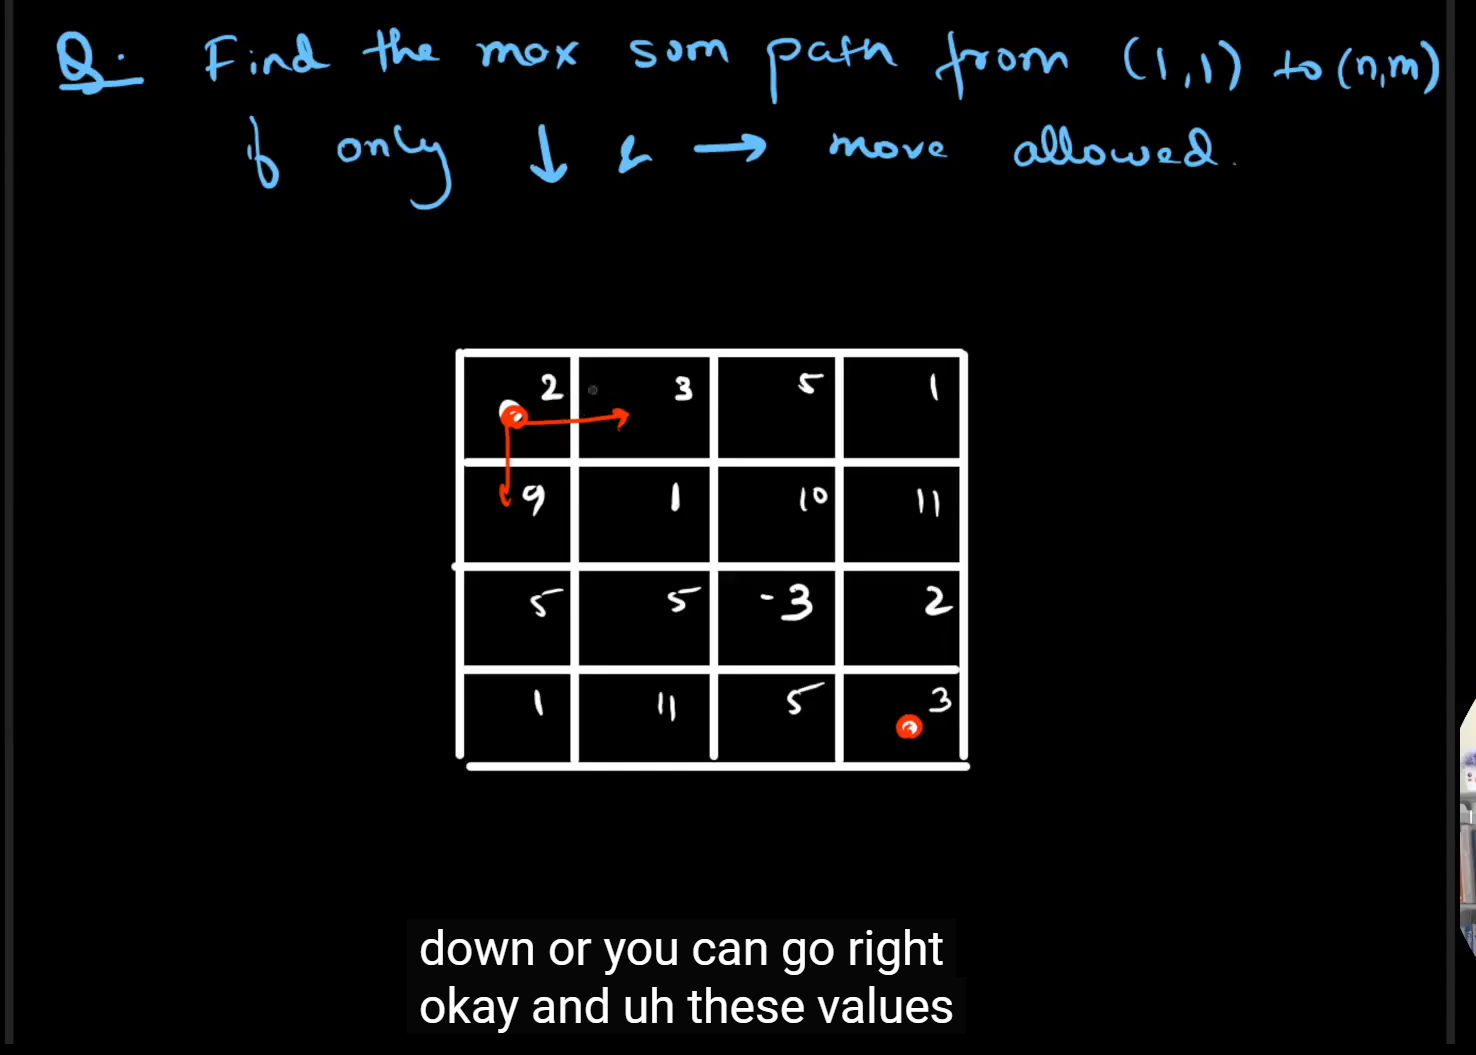 Q. Find the max sum path from (1,1) to (n,m)
if only ↓ & → move allowed.
2 3 5 1
9 1 10 11
5 5 -3 2
1 11 5 3
down or you can go right
okay and uh these values